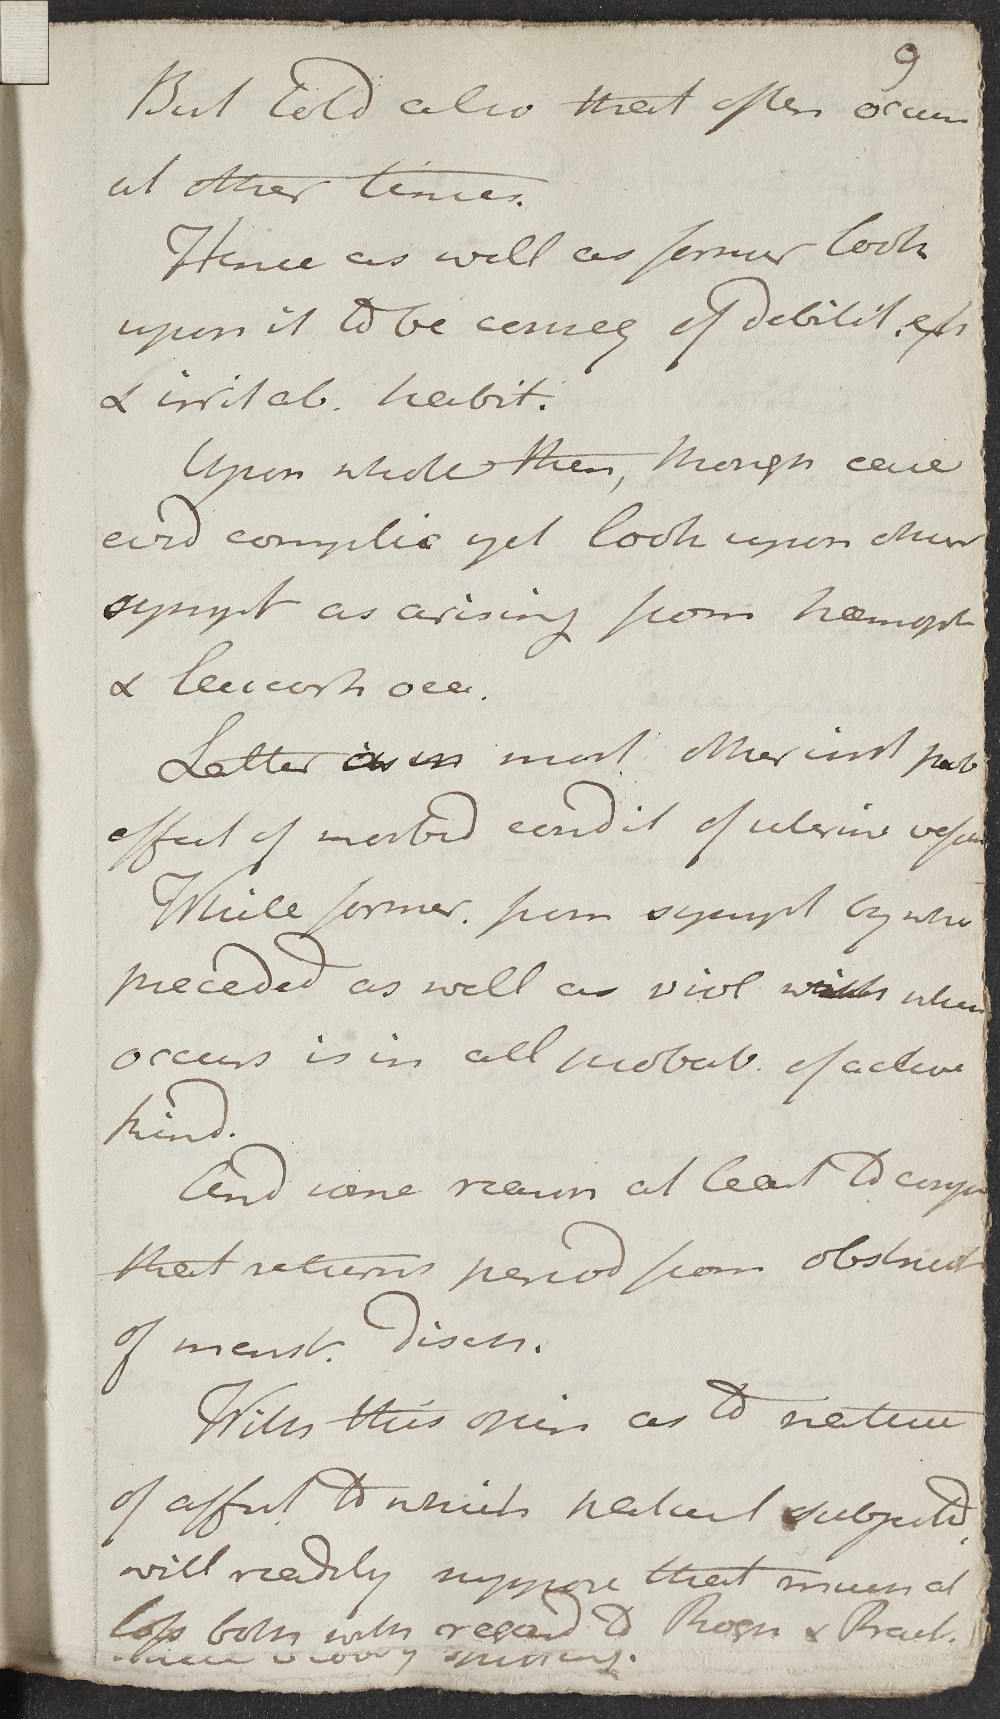 9
But told also that often occurs
at other times.
Hence as well as former look
upon it to be conseq of debilit.
& irritab. habit.
Upon whole then, though case
cert complic yet look upon other
sympt as arising from hæmopt
& leucorrhoea.
Latter as in most other inst prob
effect of morbid condit of uterine vessels
While former. from sympt by wh
preceded as well as viol with when
occurs is in all probab. of active
kind.
And some reason at least to conject
that returns period from obstruct
of menst. disch.
With this opin as to nature
of affect to which patient subjected,
will readily suppose that must at
loss both with regard to Progn & Pract.